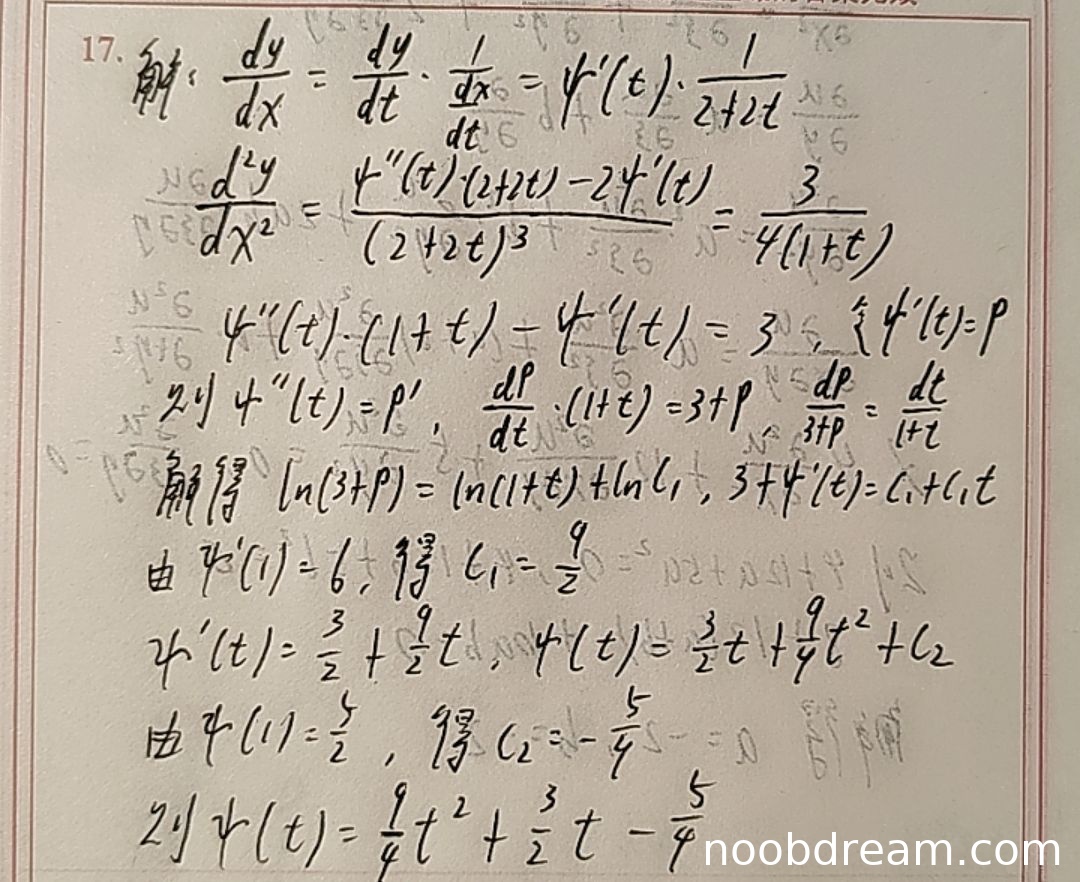 17. 解: dy/dx = dy/dt · 1/(dx/dt) = ψ'(t) · 1/(2+2t)
d²y/dx² = (ψ''(t)·(2+2t) - 2ψ'(t))/(2+2t)³ = 3/(4(1+t))
ψ''(t)·(1+t) - ψ'(t) = 3, 令ψ'(t)=p
则 ψ''(t)=p', dp/dt·(1+t)=3+p, dp/(3+p) = dt/(1+t)
解得 ln(3+p) = ln(1+t)+lnC₁, 3+ψ'(t)=C₁+C₁t
由 ψ'(1)=6, 得 C₁=9/2
ψ'(t) = 3/2 + 9/2 t, ψ(t) = 3/2 t + 9/4 t² + C₂
由 ψ(1)=5/2, 得 C₂=-5/4
则 ψ(t) = 9/4 t² + 3/2 t - 5/4
noobdream.com